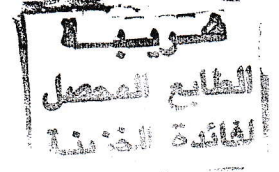 ضريبة
الطابع المحصل
لفائدة الخزينة